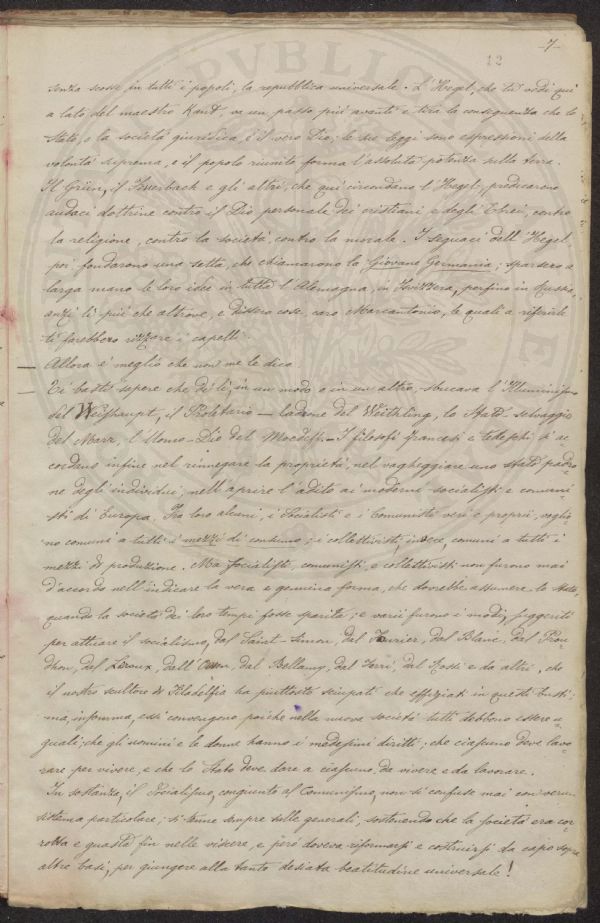 7
12
senza scosse, in tutti i popoli, la repubblica universale. L'Hegel, che tu vedi qui
a lato del maestro Kant, va un passo più avanti e tira la conseguenza che lo
Stato, o la società giuridica, è il vero Dio; le sue leggi sono espressioni della
volontà suprema, e il popolo riunito forma l'assoluta potenza sulla terra.
Il Grün, il Feuerbach e gli altri, che qui circondano l'Hegel, predicarono
audaci dottrine contro il Dio personale dei cristiani e degli Ebrei, contro
la religione, contro la società, contro la morale. I seguaci dell'Hegel
poi fondarono una setta, che chiamarono la Giovane Germania; sparsero a
larga mano le loro idee in tutta l'Alemagna, in Isvizzera, perfino in Russia
anzi lì più che altrove, e dissero cose, caro Marcantonio, le quali a riferirle
ti farebbero rizzare i capelli.
— Allora è meglio che non me le dica.
— Ti basti sapere che di lì, in un modo o in un altro, sbucava l'Illuminismo
del Weishaupt, il Proletario – ladrone del Weithling, lo Stato selvaggio
del Marr, l'Uomo – Dio del – I filosofi francesi e tedeschi s'ac
cordano infine nel rinnegare la proprietà, nel vagheggiare uno stato padro-
ne degli individui, nell'aprire l'adito ai moderni socialisti e comuni-
sti di Europa. Fra loro alcuni, i Socialisti e i Comunisti veri e proprii, voglio-
no comuni a tutti i mezzi di consumo; i collettivisti, invece, comuni a tutti i
mezzi di produzione. Ma socialisti, comunisti e collettivisti non furono mai
d'accordo nell'indicare la vera e genuina forma, che dovrebbe assumere lo Stato,
quando la società dei loro tempi fosse sparita; e varii furono i modi, suggeriti
per attuare il socialismo, dal Saint-Simon, dal Fourier, dal Blanc, dal Prou-
dhon, dal Leroux, dall'Owen, dal Bellamy, dal Ferri, dal Rossi e da altri, che
il nostro scultore di Filadelfia ha piuttosto sciupati che effigiati in questi busti;
ma, insomma, essi convengono poichè nella nuova società tutti debbono essere e-
guali; che gli uomini e le donne hanno i medesimi diritti; che ciascuno deve lavo-
rare, per vivere, e che lo Stato deve dare a ciascuno, da vivere e da lavorare.
In sostanza, il Socialismo, congiunto al Comunismo, non si confuse mai con verun
sistema particolare; si tenne sempre sulle generali, sostenendo che la società era cor-
rotta e guasta fin nelle viscere, e però doveva riformarsi e costruirsi da capo sopra
altre basi, per giungere alla tanto desiata beatitudine universale!